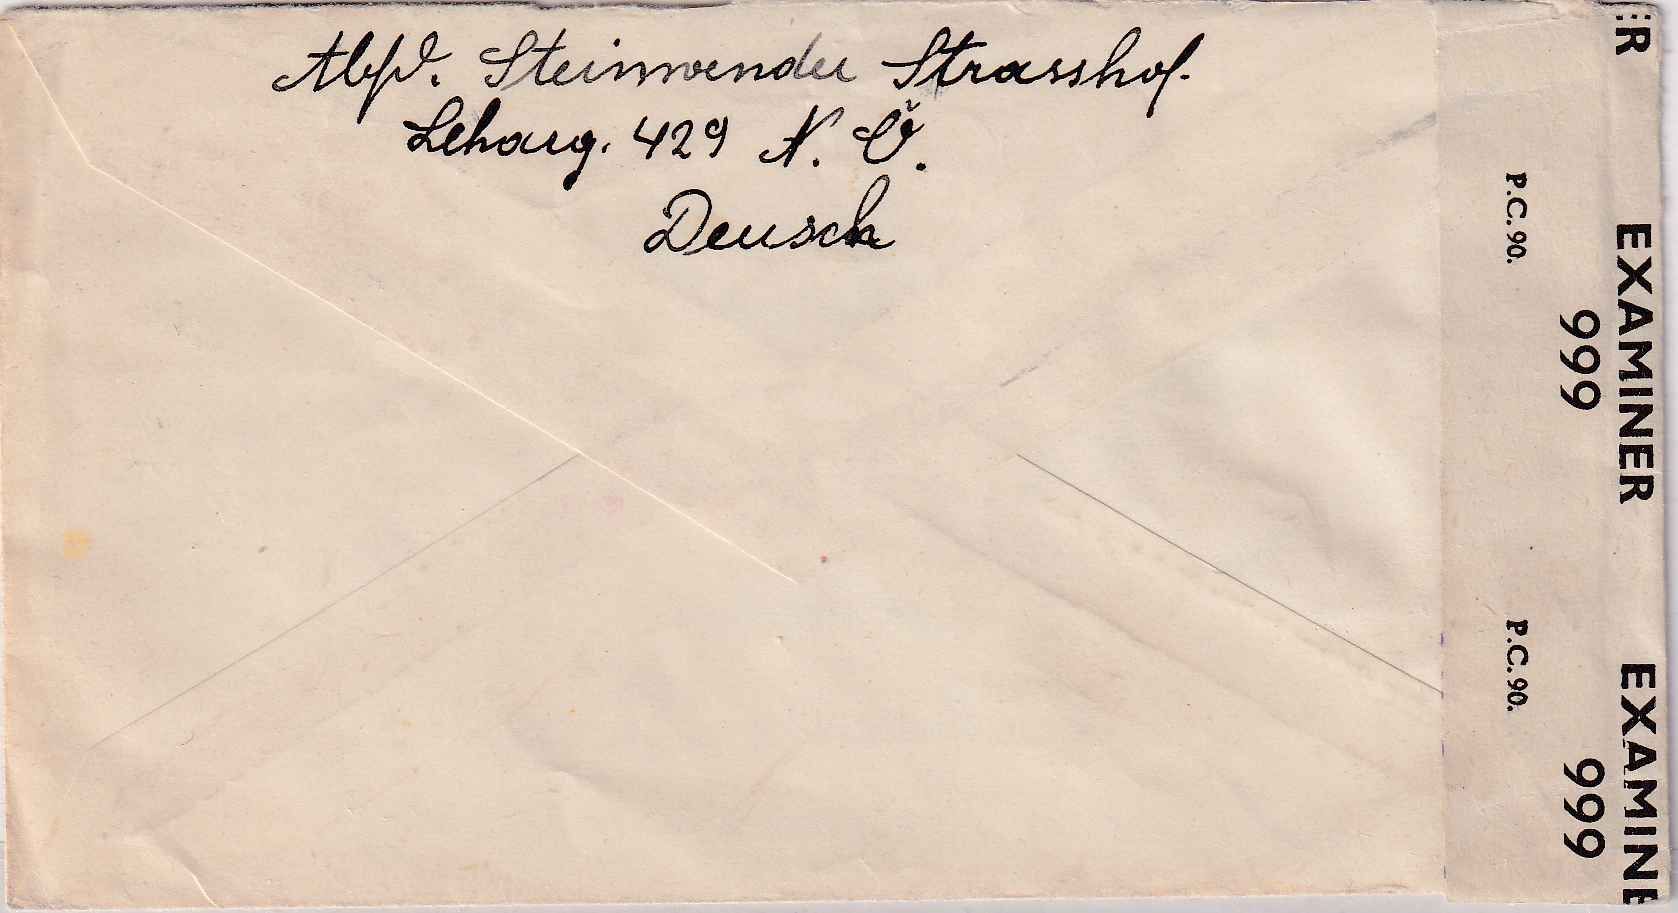 Abs. Steinwender Strasshof.
Leharg. 429 N. Ö.
Deusch
ER
EXAMINER
999
EXAMINE
999
P.C. 90.
P.C. 90.